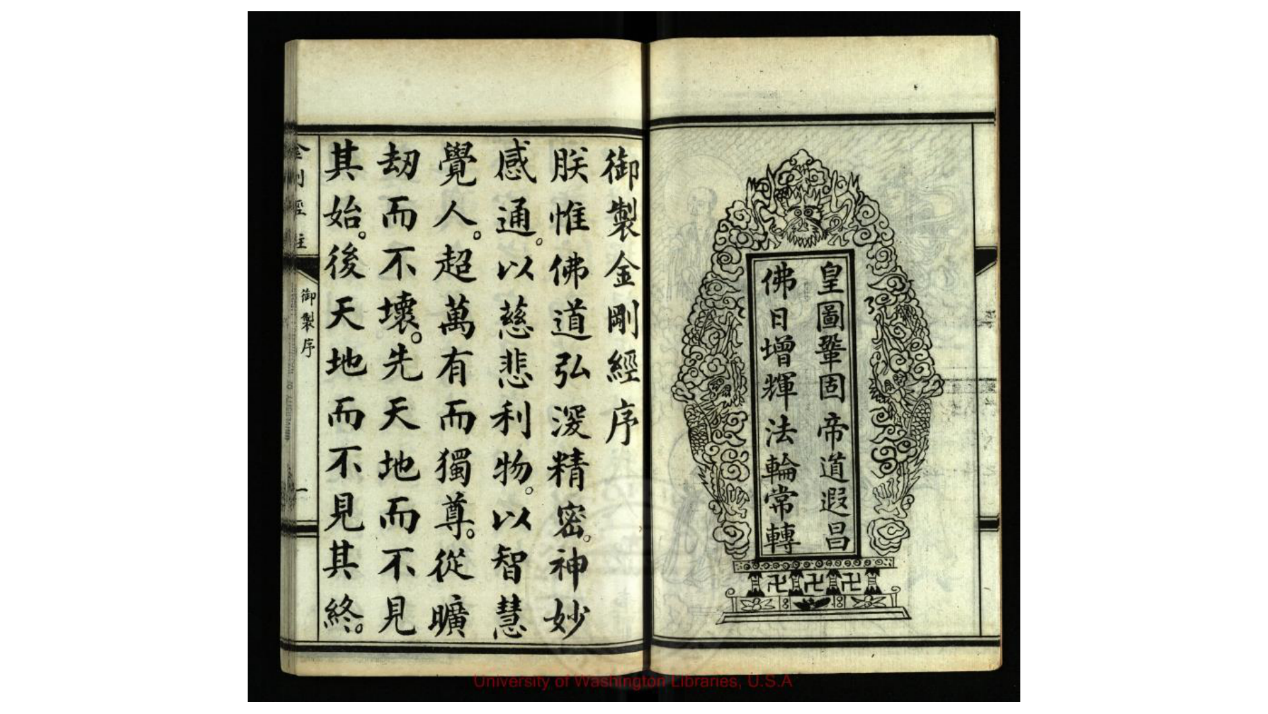 皇圖鞏固 帝道遐昌
佛日增輝 法輪常轉
御製金剛經序
朕惟佛道弘深精密。神妙
感通。以慈悲利物。以智慧
覺人。超萬有而獨尊。從曠
劫而不壞。先天地而不見
其始。後天地而不見其終。
金剛經註
御製序
一
University of Washington Libraries, U.S.A